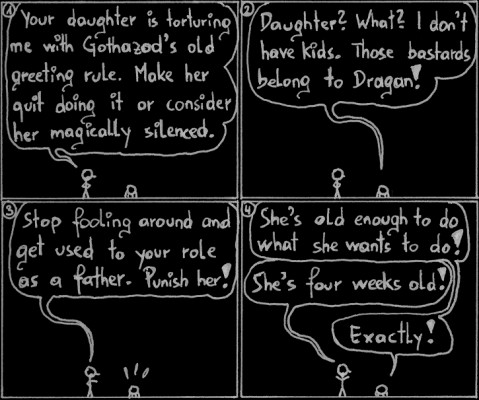 1
Your daughter is torturing
me with Gothazod's old
greeting rule. Make her
quit doing it or consider
her magically silenced.
2
Daughter? What? I don't
have kids. Those bastards
belong to Dragan!
3
Stop fooling around and
get used to your role
as a father. Punish her!
4
She's old enough to do
what she wants to do!
She's four weeks old!
Exactly!